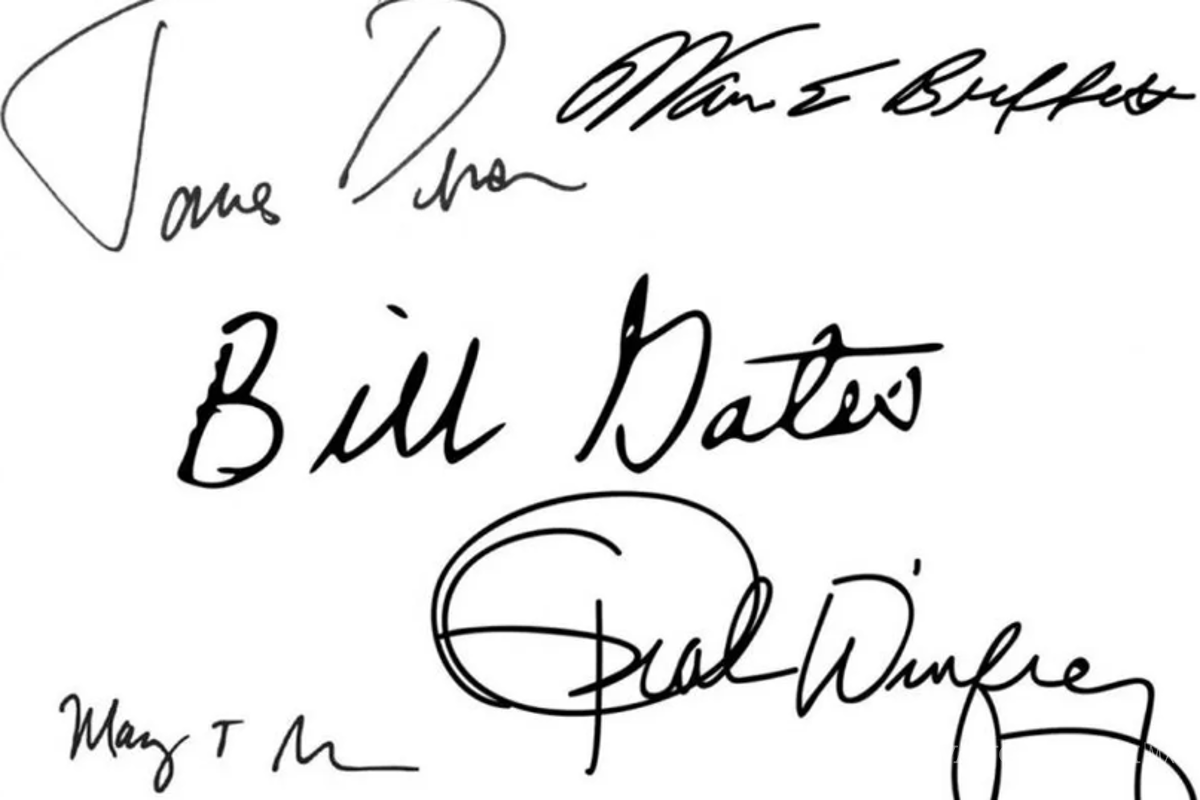 James D
Warren E Buffett
Bill Gates
Oprah Winfrey
Mary T